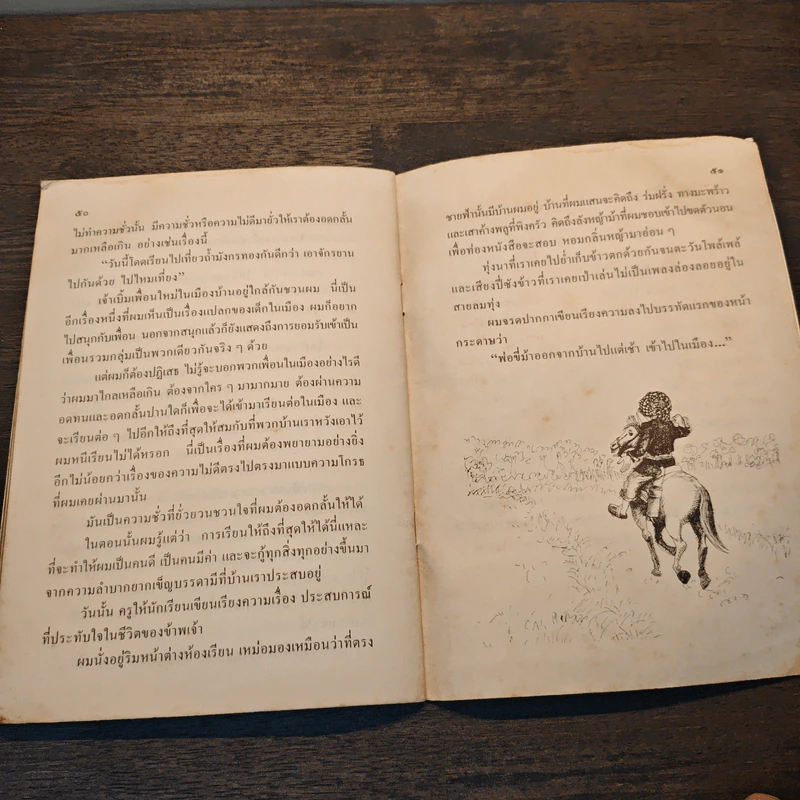 ๕๐
ไม่ทำความชั่วนั้น มีความชั่วหรือความไม่ดีมายั่วให้เราต้องอดกลั้น
มากเหลือเกิน อย่างเช่นเรื่องนี้
“วันนี้โดดเรียนไปเที่ยวถ้ำมังกรทองกันดีกว่า เอาจักรยาน
ไปกันด้วย ไปไหมเที่ยง”
เจ้าเบิ้มเพื่อนใหม่ในเมืองบ้านอยู่ใกล้กันชวนผม นี่เป็น
อีกเรื่องหนึ่งที่ผมเห็นเป็นเรื่องแปลกของเด็กในเมือง ผมก็อยาก
ไปสนุกกับเพื่อน นอกจากสนุกแล้วก็ยังแสดงถึงการยอมรับเข้าเป็น
เพื่อนรวมกลุ่มเป็นพวกเดียวกันจริง ๆ ด้วย
แต่ผมก็ต้องปฏิเสธ ไม่รู้จะบอกพวกเพื่อนในเมืองอย่างไรดี
ว่าผมมาไกลเหลือเกิน ต้องจากใคร ๆ มามากมาย ต้องผ่านความ
อดทนและอดกลั้นปานใดก็เพื่อจะได้เข้ามาเรียนต่อในเมือง และ
จะเรียนต่อ ๆ ไปอีกให้ถึงที่สุดให้สมกับที่พวกบ้านเราหวังเอาไว้
ผมหนีเรียนไม่ได้หรอก นี่เป็นเรื่องที่ผมต้องพยายามอย่างยิ่ง
อีกไม่น้อยกว่าเรื่องของความไม่ดีตรงไปตรงมาแบบความโกรธ
ที่ผมเคยผ่านมานั้น
มันเป็นความชั่วที่ยั่วยวนชวนใจที่ผมต้องอดกลั้นให้ได้
ในตอนนั้นผมรู้แต่ว่า การเรียนให้ถึงที่สุดให้ได้นี่แหละ
ที่จะทำให้ผมเป็นคนดี เป็นคนมีค่า และจะกู้ทุกสิ่งทุกอย่างขึ้นมา
จากความลำบากยากเข็ญบรรดามีที่บ้านเราประสบอยู่
วันนั้น ครูให้นักเรียนเขียนเรียงความเรื่อง ประสบการณ์
ที่ประทับใจในชีวิตของข้าพเจ้า
ผมนั่งอยู่ริมหน้าต่างห้องเรียน เหม่อมองเหมือนว่าที่ตรง
๕๑
ชายฟ้านั้นมีบ้านผมอยู่ บ้านที่ผมแสนจะคิดถึง ร่มฝรั่ง ทางมะพร้าว
และเสาค้างพลูที่พิงครัว คิดถึงลังหญ้าม้าที่ผมชอบเข้าไปขดตัวนอน
เพื่อท่องหนังสือจะสอบ หอมกลิ่นหญ้ามาอ่อน ๆ
ทุ่งนาที่เราเคยไปย่ำเก็บข้าวตกด้วยกันจนตะวันโพล้เพล้
และเสียงปี่ซังข้าวที่เราเคยเป่าเล่นไม่เป็นเพลงล่องลอยอยู่ใน
สายลมทุ่ง
ผมจรดปากกาเขียนเรียงความลงไปบรรทัดแรกของหน้า
กระดาษว่า
“พ่อขี่ม้าออกจากบ้านไปแต่เช้า เข้าไปในเมือง...”